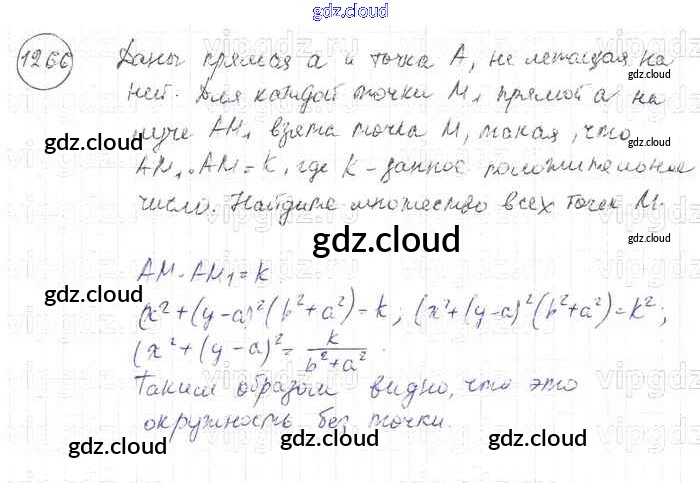 gdz.cloud
1266 Даны прямая a и точка A, не лежащая на
ней. Для каждой точки M₁ прямой a на
луче AM₁ взята точка M, такая, что
AM₁·AM=k, где k-данное положительное
число. Найдите множество всех точек M.
AM·AM₁=k.
(x²+(y-a)²(b²+a²)=k; (x²+(y-a)²(b²+a²)=k²;
(x²+(y-a)²=k/(b²+a²).
Таким образом видно, что это
окружность без точки.
gdz.cloud
gdz.cloud
gdz.cloud
gdz.cloud
gdz.cloud
gdz.cloud
gdz.cloud
gdz.cloud
gdz.cloud
gdz.cloud